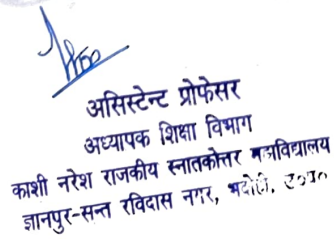 असिस्टेन्ट प्रोफेसर
अध्यापक शिक्षा विभाग
काशी नरेश राजकीय स्नातकोत्तर महाविद्यालय
ज्ञानपुर-सन्त रविदास नगर, भदोही, उ०प्र०